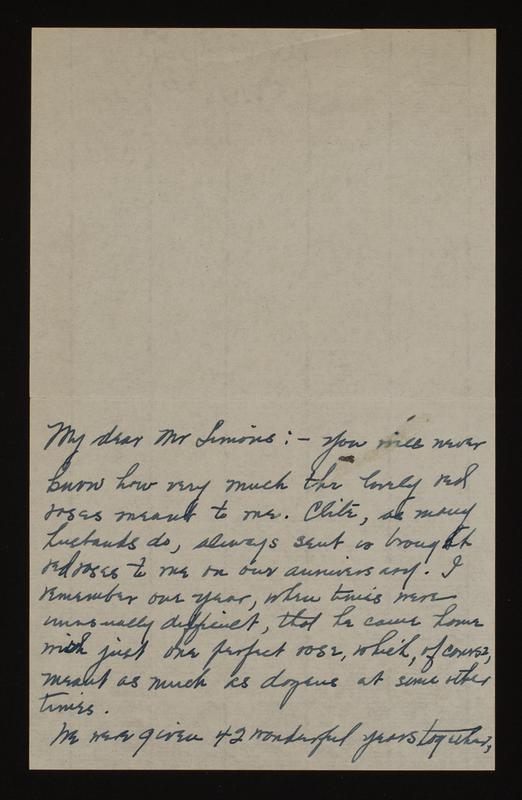 My dear Mr Simons :- You will never
know how very much the lovely red
roses meant to me. Clite, as many
husbands do, always sent or brought
red roses to me on our anniversary. I
remember one year, when times were
unusually difficult, that he came home
with just one perfect rose, which, of course,
meant as much as dozens at some other
times.
We were given 42 wonderful years together,